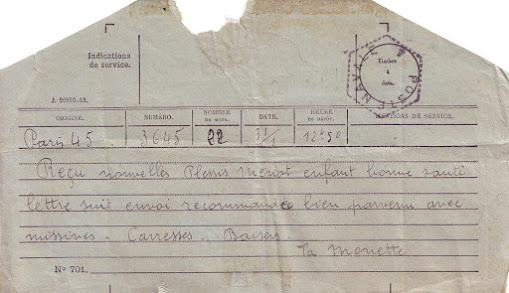 Indications
de service.
Timbre
à
date.
POSTE NAVALE
J. 50706-42.
ORIGINE. NUMÉRO. NOMBRE DE MOTS. DATE. HEURE DE DÉPÔT. MENTIONS DE SERVICE.
Paris 45 3645 22 31/1 12h50
Reçu nouvelles Plessis enfant bonne santé
lettre suit envoi recommandée bien parvenu avec
missives - Carresses - Baisers.
ta Monette
N° 701.